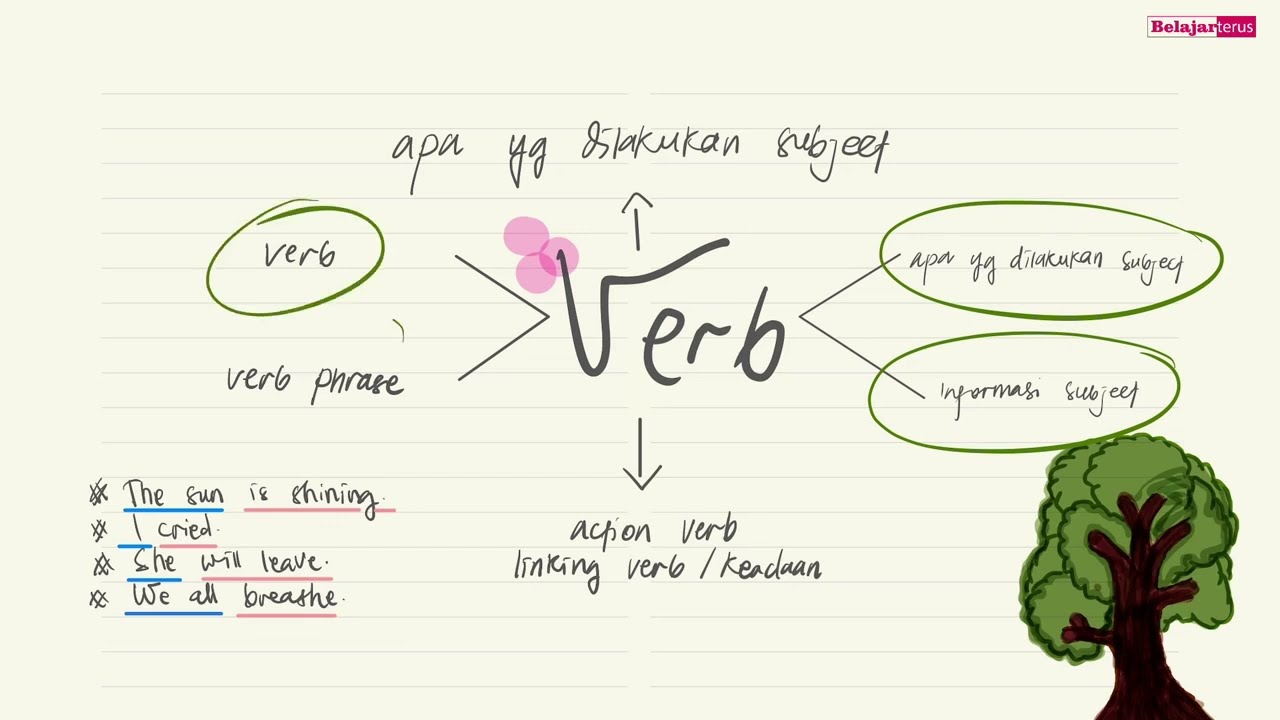 Belajarterus
apa yg dilakukan subject
verb
verb phrase
Verb
apa yg dilakukan subject
informasi subject
The sun is shining.
I cried.
She will leave.
We all breathe.
action verb
linking verb / keadaan